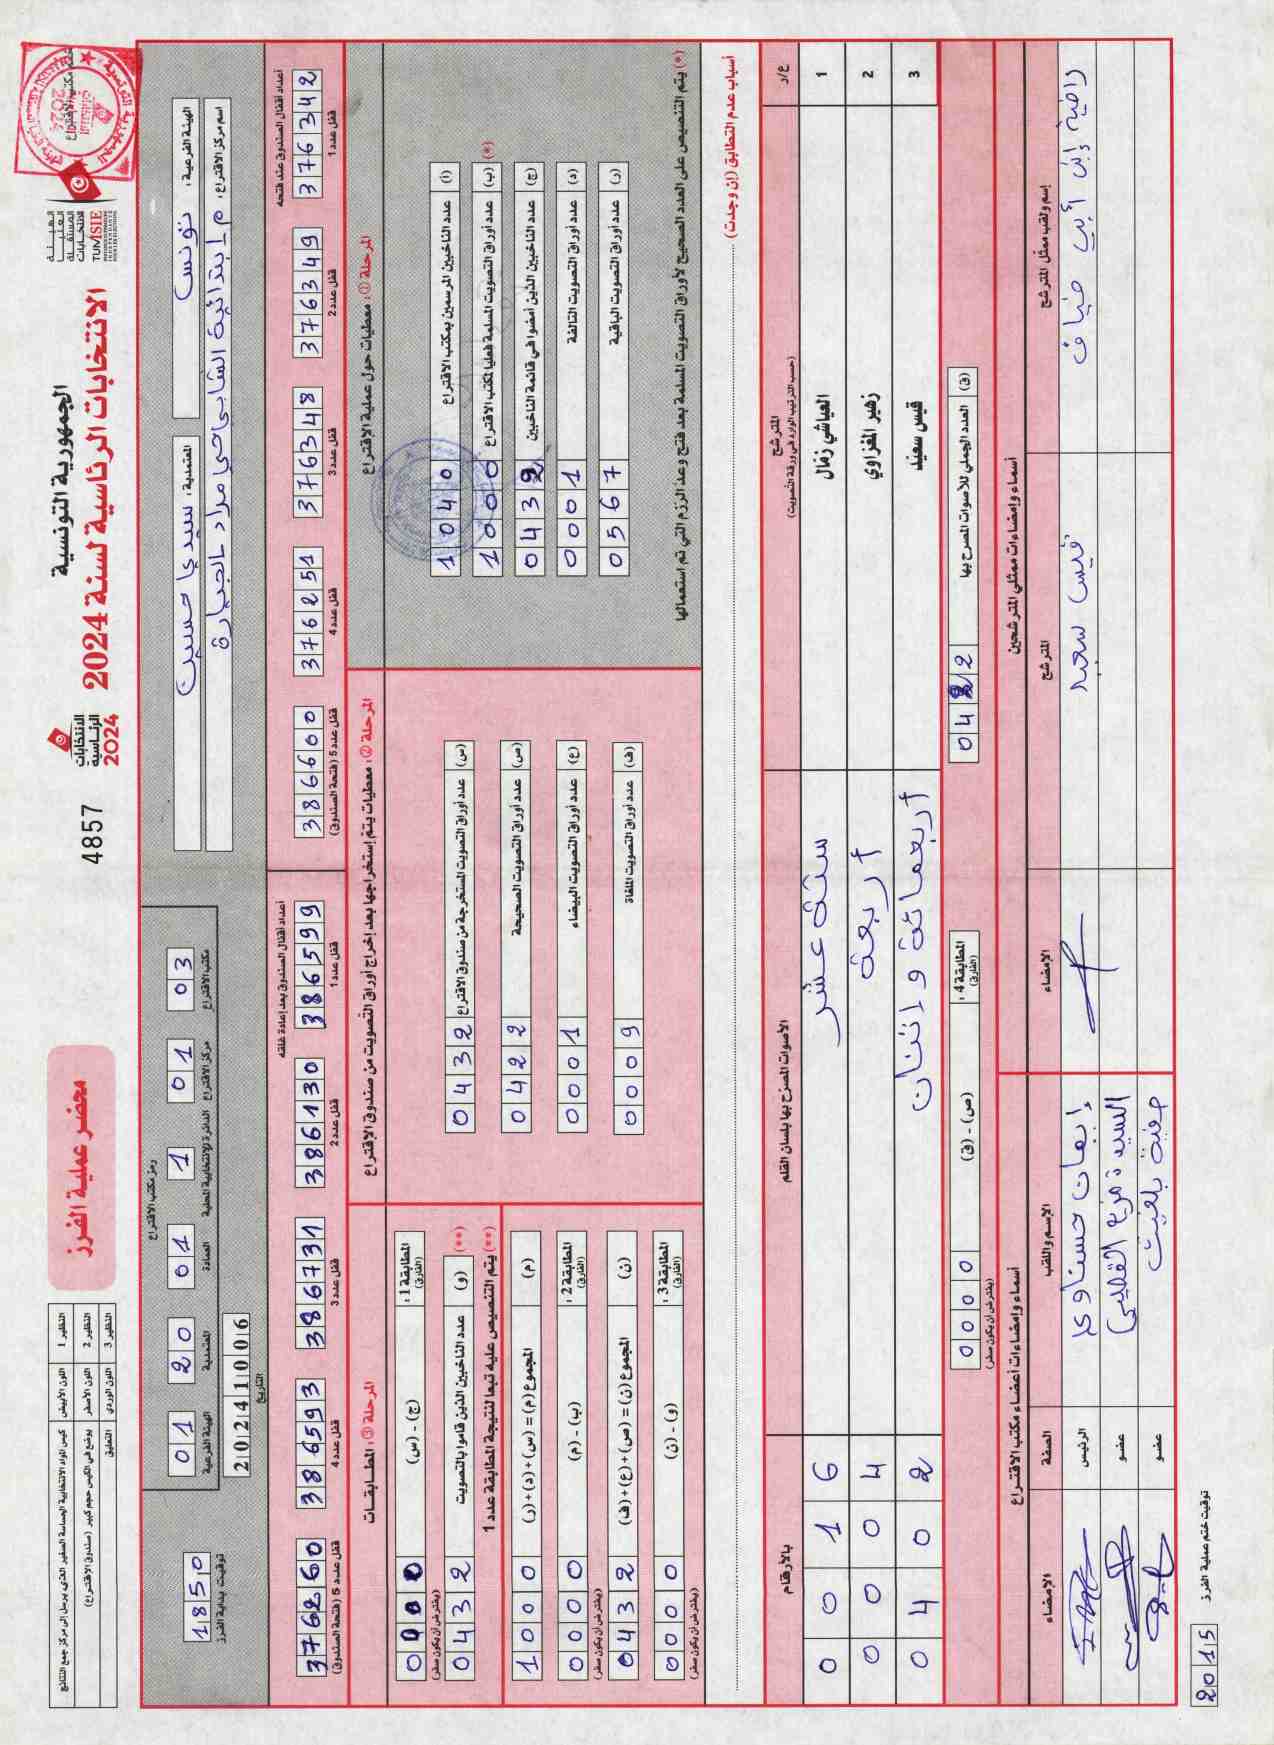 الجمهورية التونسية
الانتخابات الرئاسية لسنة 2024
الهيئة
العليا
المستقلة
للانتخابات
TUNISIE
الانتخابات
الرئاسية
2024
4857
محضر عملية الفرز
النظير 1 اللون الأبيض كيس المواد الانتخابية الحساسة الصغير الذي يرسل إلى مركز جمع النتائج
النظير 2 اللون الأصفر يوضع في الكيس حجم كبير (صندوق الاقتراع)
النظير 3 اللون الوردي التعليق
ختم مكتب الاقتراع
الهيئة الفرعية: تونس
المعتمدية: سيدي حسين
اسم مركز الاقتراع: م ابتدائية الشابي حي مراد الجيارة
رمز مكتب الاقتراع
مكتب الاقتراع 03
مركز الاقتراع 01
الدائرة الانتخابية المحلية 1
العمادة 01
المعتمدية 20
الهيئة الفرعية 01
التاريخ 20241006
توقيت بداية الفرز 1850
أعداد أقفال الصندوق عند فتحه
قفل عدد 1 376342
قفل عدد 2 376349
قفل عدد 3 376348
قفل عدد 4 376251
قفل عدد 5 (فتحة الصندوق) 386600
أعداد أقفال الصندوق بعد إعادة غلقه
قفل عدد 1 386599
قفل عدد 2 386130
قفل عدد 3 386731
قفل عدد 4 386593
قفل عدد 5 (فتحة الصندوق) 376260
المرحلة ①: معطيات حول عملية الاقتراع
(أ) عدد الناخبين المرسمين بمكتب الاقتراع 1040
(ب) عدد أوراق التصويت المسلمة فعليا لمكتب الاقتراع (*) 1000
(ج) عدد الناخبين الذين أمضوا في قائمة الناخبين 0432
(د) عدد أوراق التصويت التالفة 0001
(ر) عدد أوراق التصويت الباقية 0567
(*) يتم التنصيص على العدد الصحيح لأوراق التصويت المسلمة بعد فتح وعد الرزم التي تم استعمالها
المرحلة ②: معطيات يتم إستخراجها بعد إخراج أوراق التصويت من صندوق الإقتراع
(س) عدد أوراق التصويت المستخرجة من صندوق الاقتراع 0432
(ص) عدد أوراق التصويت الصحيحة 0422
(ع) عدد أوراق التصويت البيضاء 0001
(ف) عدد أوراق التصويت الملغاة 0009
المرحلة ③: المطابقات
المطابقة 1: (الفارق) (ج) - (س) 000 (يفترض أن يكون صفر)
(و) عدد الناخبين الذين قاموا بالتصويت (**) 0432
(**) يتم التنصيص عليه تبعا لنتيجة المطابقة عدد 1
(م) المجموع (م) = (س) + (د) + (ر) 1000
المطابقة 2: (الفارق) (ب) - (م) 0000 (يفترض أن يكون صفر)
(ن) المجموع (ن) = (ص) + (ع) + (ف) 0432
المطابقة 3: (الفارق) (و) - (ن) 0000 (يفترض أن يكون صفر)
أسباب عدم التطابق (إن وجدت)
ع/د المترشح (حسب الترتيب الوارد في ورقة التصويت) الأصوات المصرّح بها بلسان القلم بالأرقام
1 العياشي زمال ستة عشر 0016
2 زهير المغزاوي أربعة 0004
3 قيس سعيّد أربعمائة و اثنان 0402
(ق) العدد الجملي للأصوات المصرح بها 0422
المطابقة 4: (الفارق) (ص) - (ق) 0000 (يفترض أن يكون صفر)
أسماء وإمضاءات ممثلي المترشحين
إسم ولقب ممثل المترشح المترشح الإمضاء
راضية إبن أبي ضياف قيس سعيد
أسماء وإمضاءات أعضاء مكتب الاقتراع
الإسم واللقب الصفة الإمضاء
إيمان حسناوي الرئيس
السيدة فرح القليبي عضو
صفية بلغيث عضو
توقيت ختم عملية الفرز 2015